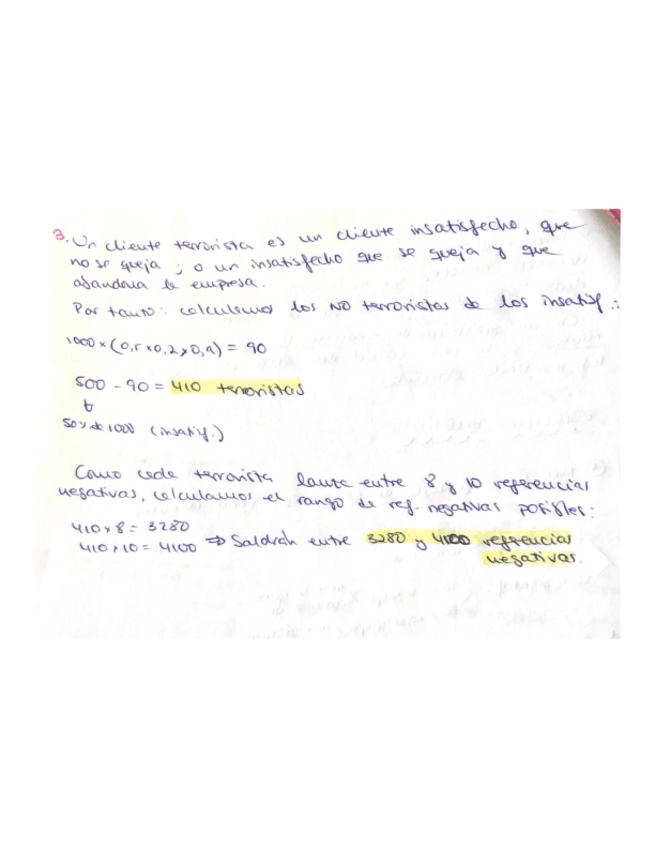 3. Un cliente terrorista es un cliente insatisfecho, que
no se queja ; o un insatisfecho que se queja y que
abandona la empresa.
Por tanto: calculamos los NO terroristas de los insatisf.:
1000 x (0,5 x 0,2 x 0,9) = 90
500 - 90 = 410 terroristas
50% de 1000 (insatisf.)
Como cada terrorista lanza entre 8 y 10 referencias
negativas, calculamos el rango de ref. negativas posibles:
410 x 8 = 3280
410 x 10 = 4100 ⇒ Saldrán entre 3280 y 4100 referencias
negativas.